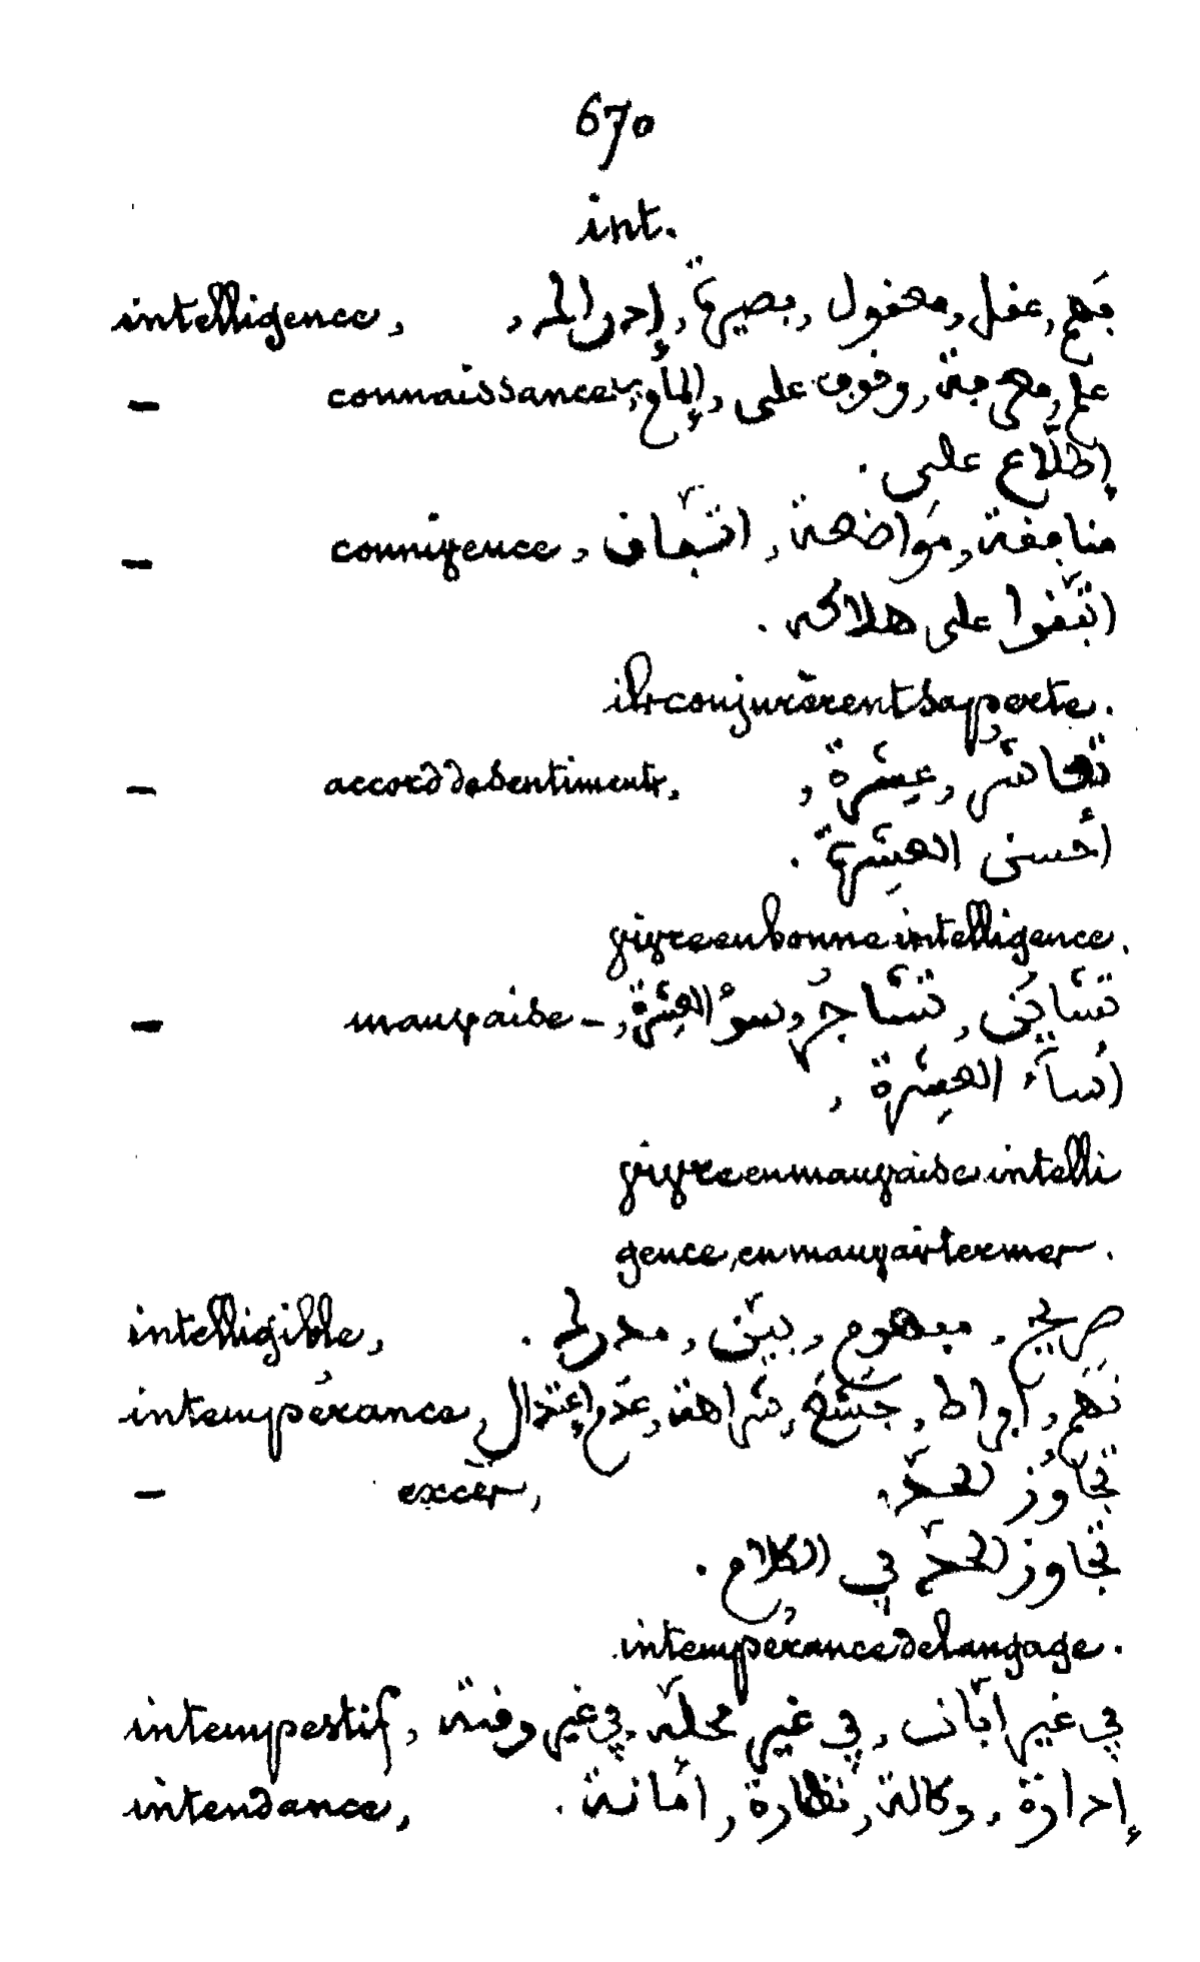 670
int.
intelligence, فَهم, عقل, معقول, بصيرة, إدراك,
— connaissance, علم, معرفة, وقوف على, إلماع,
إطّلاع على.
— connivence, منافقة, مَواضعة, اتّفاق
اتّفقوا على هلاكه.
ils conjurèrent sa perte.
— accord de sentiments, تعاشُر, عِشْرة,
أحسن العِشْرة.
vivre en bonne intelligence.
— mauvaise —, تشاين, تشاجُر, سوءُ العِشْرة
أساء العِشْرة,
vivre en mauvaise intelli
gence, en mauvais termes.
intelligible, صريح, مفهوم, بيّن, مدرك.
intempérance, نَهَم, إفراط, جَشَع, شراهة, عَدَم إعتدال
— excès, تجاوُز الحدّ,
تجاوز الحدّ في الكلام.
intempérance de langage.
intempestif, في غير ابّان, في غير محلّه, في غير وقته
intendance, إدارة, وكالة, نظارة, أمانة.